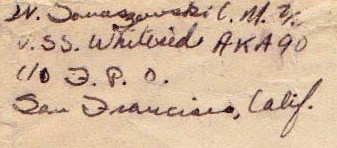 W. Tomaszewski C. M. 3/c
U.S.S. Whiteside AKA90
c/o F. P. O.
San Francisco, Calif.